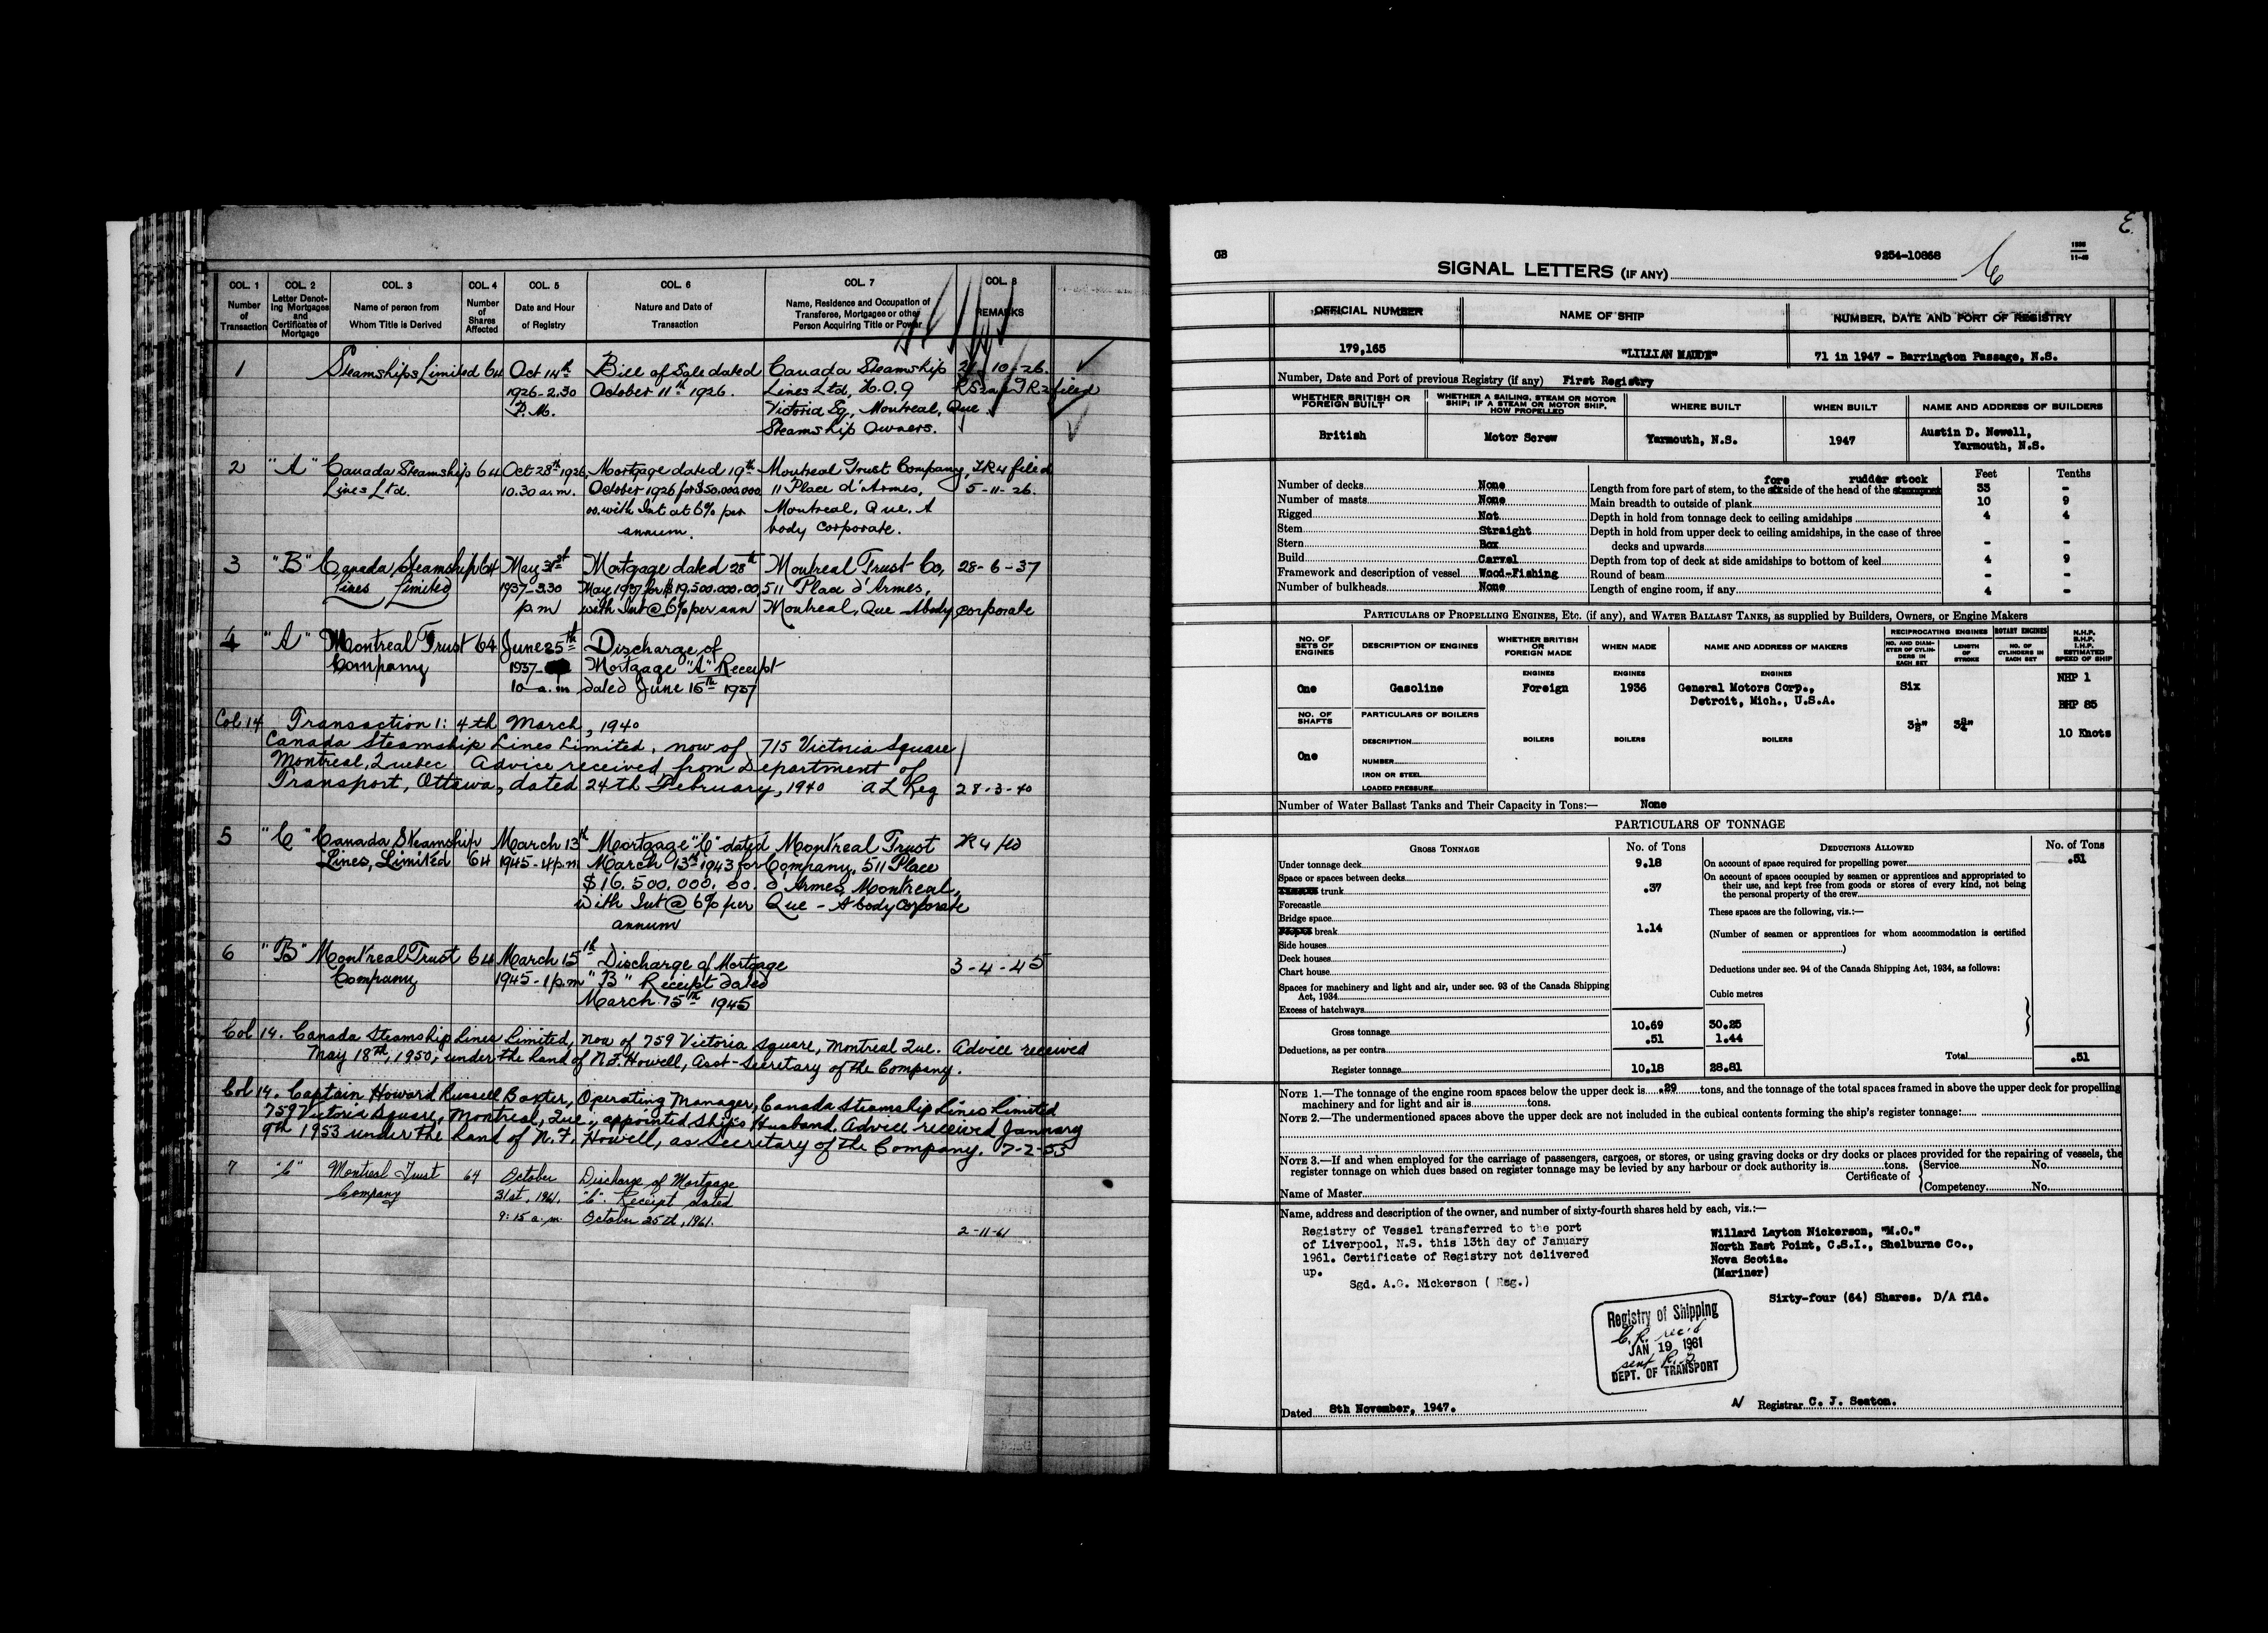 COL. 1 COL. 2 COL. 3 COL. 4 COL. 5 COL. 6 COL. 7 COL. 8
Number of Transaction
Letter Denoting Mortgages and Certificates of Mortgage
Name of person from Whom Title is Derived
Number of Shares Affected
Date and Hour of Registry
Nature and Date of Transaction
Name, Residence and Occupation of Transferee, Mortgagee or other Person Acquiring Title or Power
REMARKS
1 Steamships Limited 64 Oct 14th Bill of Sale dated Canada Steamship 21-10-26.
1926-2.30 October 11th 1926. Lines Ltd, filed
P.M. Victoria Sq, Montreal, Que
Steamship Owners.
2 "A" Canada Steamship 64 Oct 28th 1926, Mortgage dated 19th Montreal Trust Company, filed
Lines Ltd. 10.30 a.m. October 1926 for $50,000,000. 11 Place d'Armes, 5-11-26.
00. with Int at 6% per Montreal, Que. A
annum. body corporate.
3 "B" Canada Steamship 64 May 31st Mortgage dated 28th Montreal Trust Co, 28-6-37
Lines Limited 1937-3.30 May 1937 for $19,500.000.00, 511 Place d'Armes,
p.m with Int @ 6% per ann Montreal, Que A body corporate
4 "A" Montreal Trust 64 June 25th Discharge of
Company 1937- Mortgage "A" Receipt
10 a.m dated June 15th 1937
Col 14 Transaction 1: 4th March, 1940
Canada Steamship Lines Limited, now of 715 Victoria Square
Montreal, Quebec Advice received from Department of
Transport, Ottawa, dated 24th February, 1940 28-3-40
5 "C" Canada Steamship March 13th Mortgage "C" dated Montreal Trust
Lines, Limited 64 1945-4p.m March 13th 1943 for Company, 511 Place
$16.500.000.00. d'Armes, Montreal,
with Int @ 6% per Que - A body corporate
annum
6 "B" Montreal Trust 64 March 15th Discharge of Mortgage 3-4-45
Company 1945-1p.m "B" Receipt dated
March 15th 1945
Col 14. Canada Steamship Lines Limited, now of 759 Victoria Square, Montreal Que. Advice received
May 18th, 1950, under the hand of N.F. Howell, Asst-Secretary of the Company.
Col 14. Captain Howard Russell Baxter, Operating Manager, Canada Steamship Lines Limited
759 Victoria Square, Montreal, Que., appointed Ship's Husband. Advice received January
9th 1953 under the hand of N.F. Howell, as Secretary of the Company. 7-2-53
7 "C" Montreal Trust 64 October Discharge of Mortgage
Company 31st, 1961. "C". Receipt dated
9:15 a.m. October 25th, 1961.
2-11-61
E.
GB 9254-10868
SIGNAL LETTERS (IF ANY)
OFFICIAL NUMBER NAME OF SHIP NUMBER, DATE AND PORT OF REGISTRY
179,165 "LILLIAN MAUDE" 71 in 1947 - Barrington Passage, N.S.
Number, Date and Port of previous Registry (if any) First Registry
WHETHER BRITISH OR FOREIGN BUILT
WHETHER A SAILING, STEAM OR MOTOR SHIP; IF A STEAM OR MOTOR SHIP, HOW PROPELLED
WHERE BUILT WHEN BUILT NAME AND ADDRESS OF BUILDERS
British Motor Screw Yarmouth, N.S. 1947 Austin D. Newell,
Yarmouth, N.S.
Feet Tenths
fore rudder stock
Number of decks None Length from fore part of stem, to the side of the head of the 33 -
Number of masts None Main breadth to outside of plank 10 9
Rigged Not Depth in hold from tonnage deck to ceiling amidships 4 4
Stem Straight Depth in hold from upper deck to ceiling amidships, in the case of three
Stern Box decks and upwards - -
Build Carvel Depth from top of deck at side amidships to bottom of keel 4 9
Framework and description of vessel Wood-Fishing Round of beam - -
Number of bulkheads None Length of engine room, if any 4 -
PARTICULARS OF PROPELLING ENGINES, ETC. (if any), and WATER BALLAST TANKS, as supplied by Builders, Owners, or Engine Makers
NO. OF SETS OF ENGINES
DESCRIPTION OF ENGINES
WHETHER BRITISH OR FOREIGN MADE
WHEN MADE
NAME AND ADDRESS OF MAKERS
RECIPROCATING ENGINES ROTARY ENGINES
NO. AND DIAMETER OF CYLINDERS IN EACH SET
LENGTH OF STROKE
NO. OF CYLINDERS IN EACH SET
N.H.P. B.H.P. I.H.P. ESTIMATED SPEED OF SHIP
ENGINES ENGINES ENGINES
One Gasoline Foreign 1936 General Motors Corp., Six NHP 1
Detroit, Mich., U.S.A. BHP 85
NO. OF SHAFTS PARTICULARS OF BOILERS
3½"
DESCRIPTION BOILERS BOILERS BOILERS 10 Knots
One NUMBER
IRON OR STEEL
LOADED PRESSURE
Number of Water Ballast Tanks and Their Capacity in Tons:— None
PARTICULARS OF TONNAGE
GROSS TONNAGE No. of Tons DEDUCTIONS ALLOWED No. of Tons
Under tonnage deck 9.18 On account of space required for propelling power .51
Space or spaces between decks On account of spaces occupied by seamen or apprentices and appropriated to
trunk .37 their use, and kept free from goods or stores of every kind, not being
Forecastle the personal property of the crew
Bridge space These spaces are the following, viz.:—
break 1.14 (Number of seamen or apprentices for whom accommodation is certified
Side houses )
Deck houses
Chart house Deductions under sec. 94 of the Canada Shipping Act, 1934, as follows:
Spaces for machinery and light and air, under sec. 93 of the Canada Shipping
Act, 1934 Cubic metres
Excess of hatchways
Gross tonnage 10.69 30.25
Deductions, as per contra .51 1.44
Total .51
Register tonnage 10.18 28.81
NOTE 1.—The tonnage of the engine room spaces below the upper deck is .29 tons, and the tonnage of the total spaces framed in above the upper deck for propelling
machinery and for light and air is tons.
NOTE 2.—The undermentioned spaces above the upper deck are not included in the cubical contents forming the ship's register tonnage:
NOTE 3.—If and when employed for the carriage of passengers, cargoes, or stores, or using graving docks or dry docks or places provided for the repairing of vessels, the
register tonnage on which dues based on register tonnage may be levied by any harbour or dock authority is tons. Service No.
Certificate of
Name of Master Competency No.
Name, address and description of the owner, and number of sixty-fourth shares held by each, viz.:—
Registry of Vessel transferred to the port
of Liverpool, N.S. this 13th day of January
1961. Certificate of Registry not delivered
up.
Sgd. A.G. Nickerson ( Reg.)
Willard Layton Nickerson, "M.O."
North East Point, C.S.I., Shelburne Co.,
Nova Scotia.
(Mariner)
Sixty-four (64) Shares. D/A fld.
Registry of Shipping
C.R. rec'd
JAN 19 1961
sent
DEPT. OF TRANSPORT
Dated 8th November, 1947. Registrar C. J. Seaton.